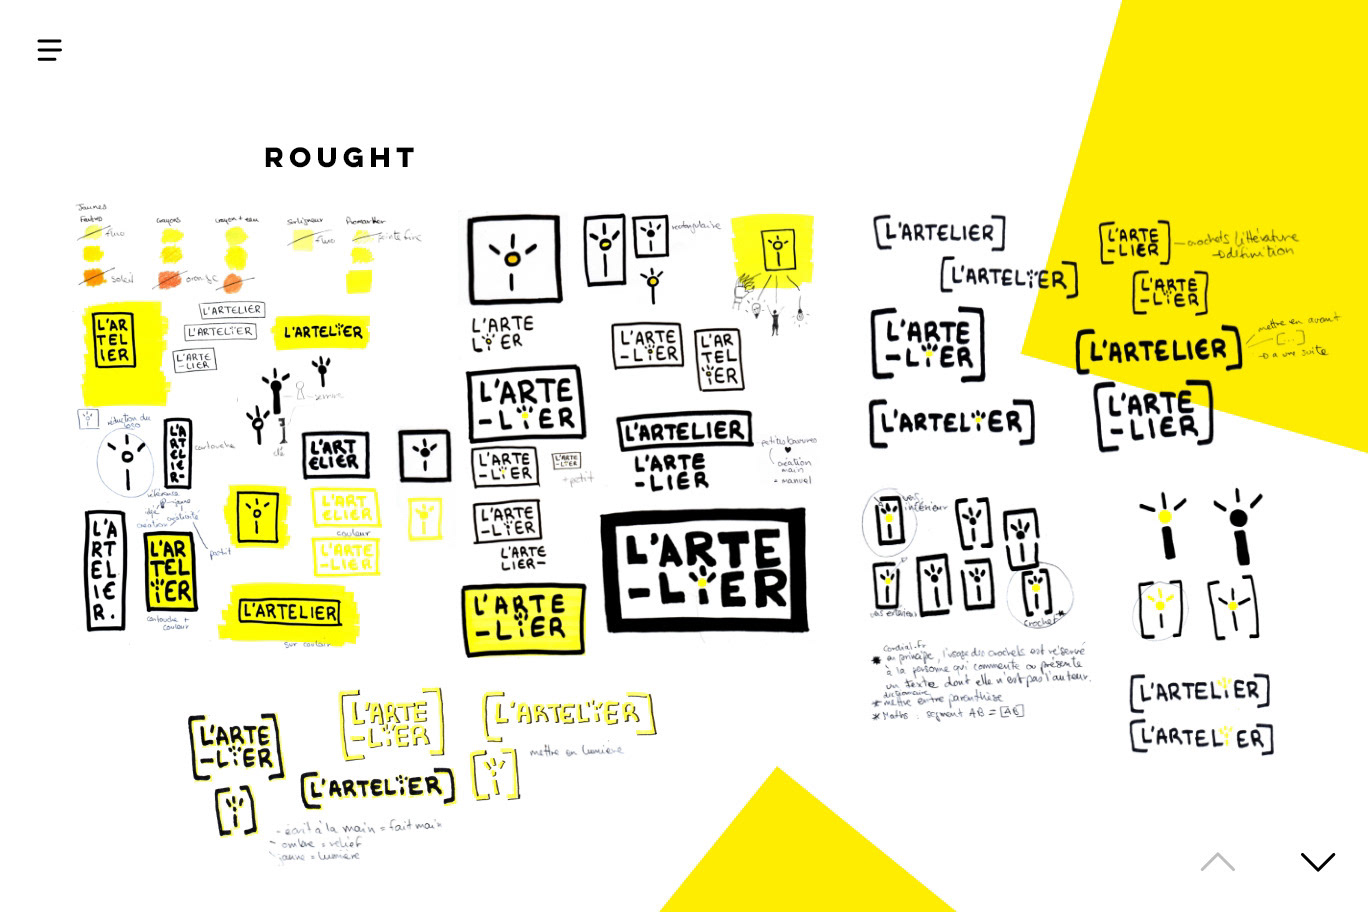 ROUGHT
Jaunes
Feutres
Crayons
crayon + eau
Surligneur
Promarker
fluo
fluo
pointe fine
soleil
orange
L'AR
TEL
IER
L'ARTELIER
L'ARTELIER
L'ARTE
-LIER
L'ARTELIER
réduction du
logo
L'A
RT
EL
IE
R-
cartouche
serrure
clé
L'ART
ELIER
référence
idée
création
petit
L'A
RT
EL
IE
R.
L'AR
TEL
IER
cartouche +
couleur
L'ART
ELIER
couleur
L'ARTE
-LIER
L'ARTELIER
sur couleur
rectangulaire
L'ARTE
LIER
L'ARTE
-LIER
L'AR
TEL
IER
L'ARTE
-LIER
L'ARTELIER
L'ARTE
-LIER
L'ARTE
-LIER
L'ARTE
-LIER
+ petit
petites bavures
création
main
= manuel
L'ARTE
-LIER
L'ARTE
LIER-
L'ARTE
-LIER
L'ARTE
-LIER
[L'ARTELIER]
[L'ARTELIER]
[L'ARTE
-LIER]
[L'ARTELIER]
[L'ARTE
-LIER]
crochets littérature
définition
[L'ARTE
-LIER]
[L'ARTELIER]
mettre en avant
[...]
a une suite
[L'ARTE
-LIER]
vers
intérieur
vers extérieur
crochet *
Cordial.fr
* au principe, l'usage des crochets est réservé
à la personne qui commente ou présente
un texte dont elle n'est pas l'auteur.
dictionnaire
* mettre entre parenthèse
* Maths : segment AB = [AB]
[L'ARTELIER]
[L'ARTELIER]
[L'ARTE
-LIER]
[L'ARTE
-LIER]
[L'ARTELIER]
[L'ARTELIER]
mettre en lumière
- écrit à la main = fait main
- ombre = relief
- jaune = lumière